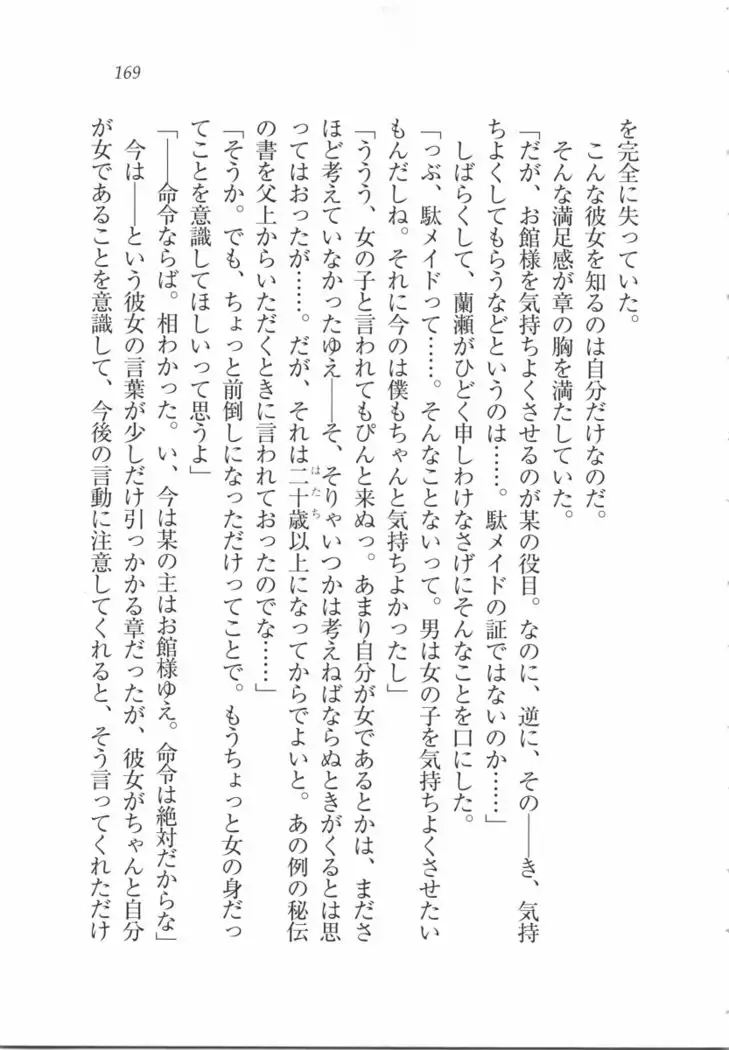 169
を完全に失っていた。
こんな彼女を知るのは自分だけなのだ。
そんな満足感が章の胸を満たしていた。
「だが、お館様を気持ちよくさせるのが某の役目。なのに、逆に、その――き、気持
ちよくしてもらうなどというのは……。駄メイドの証ではないのか……」
しばらくして、蘭瀬がひどく申しわけなさげにそんなことを口にした。
「っぷ、駄メイドって……。そんなことないって。男は女の子を気持ちよくさせたい
もんだしね。それに今のは僕もちゃんと気持ちよかったし」
「ううう、女の子と言われてもぴんと来ぬっ。あまり自分が女であるとかは、まださ
ほど考えていなかったゆえ――そ、そりゃいつかは考えねばならぬときがくるとは思
ってはおったが……。だが、それは二十歳以上になってからでよいと。あの例の秘伝
はたち
の書を父上からいただくときに言われておったのでな……」
「そうか。でも、ちょっと前倒しになっただけってことで。もうちょっと女の身だっ
てことを意識してほしいって思うよ」
「――命令ならば。相わかった。い、今は某の主はお館様ゆえ。命令は絶対だからな」
今は――という彼女の言葉が少しだけ引っかかる章だったが、彼女がちゃんと自分
が女であることを意識して、今後の言動に注意してくれると、そう言ってくれただけ